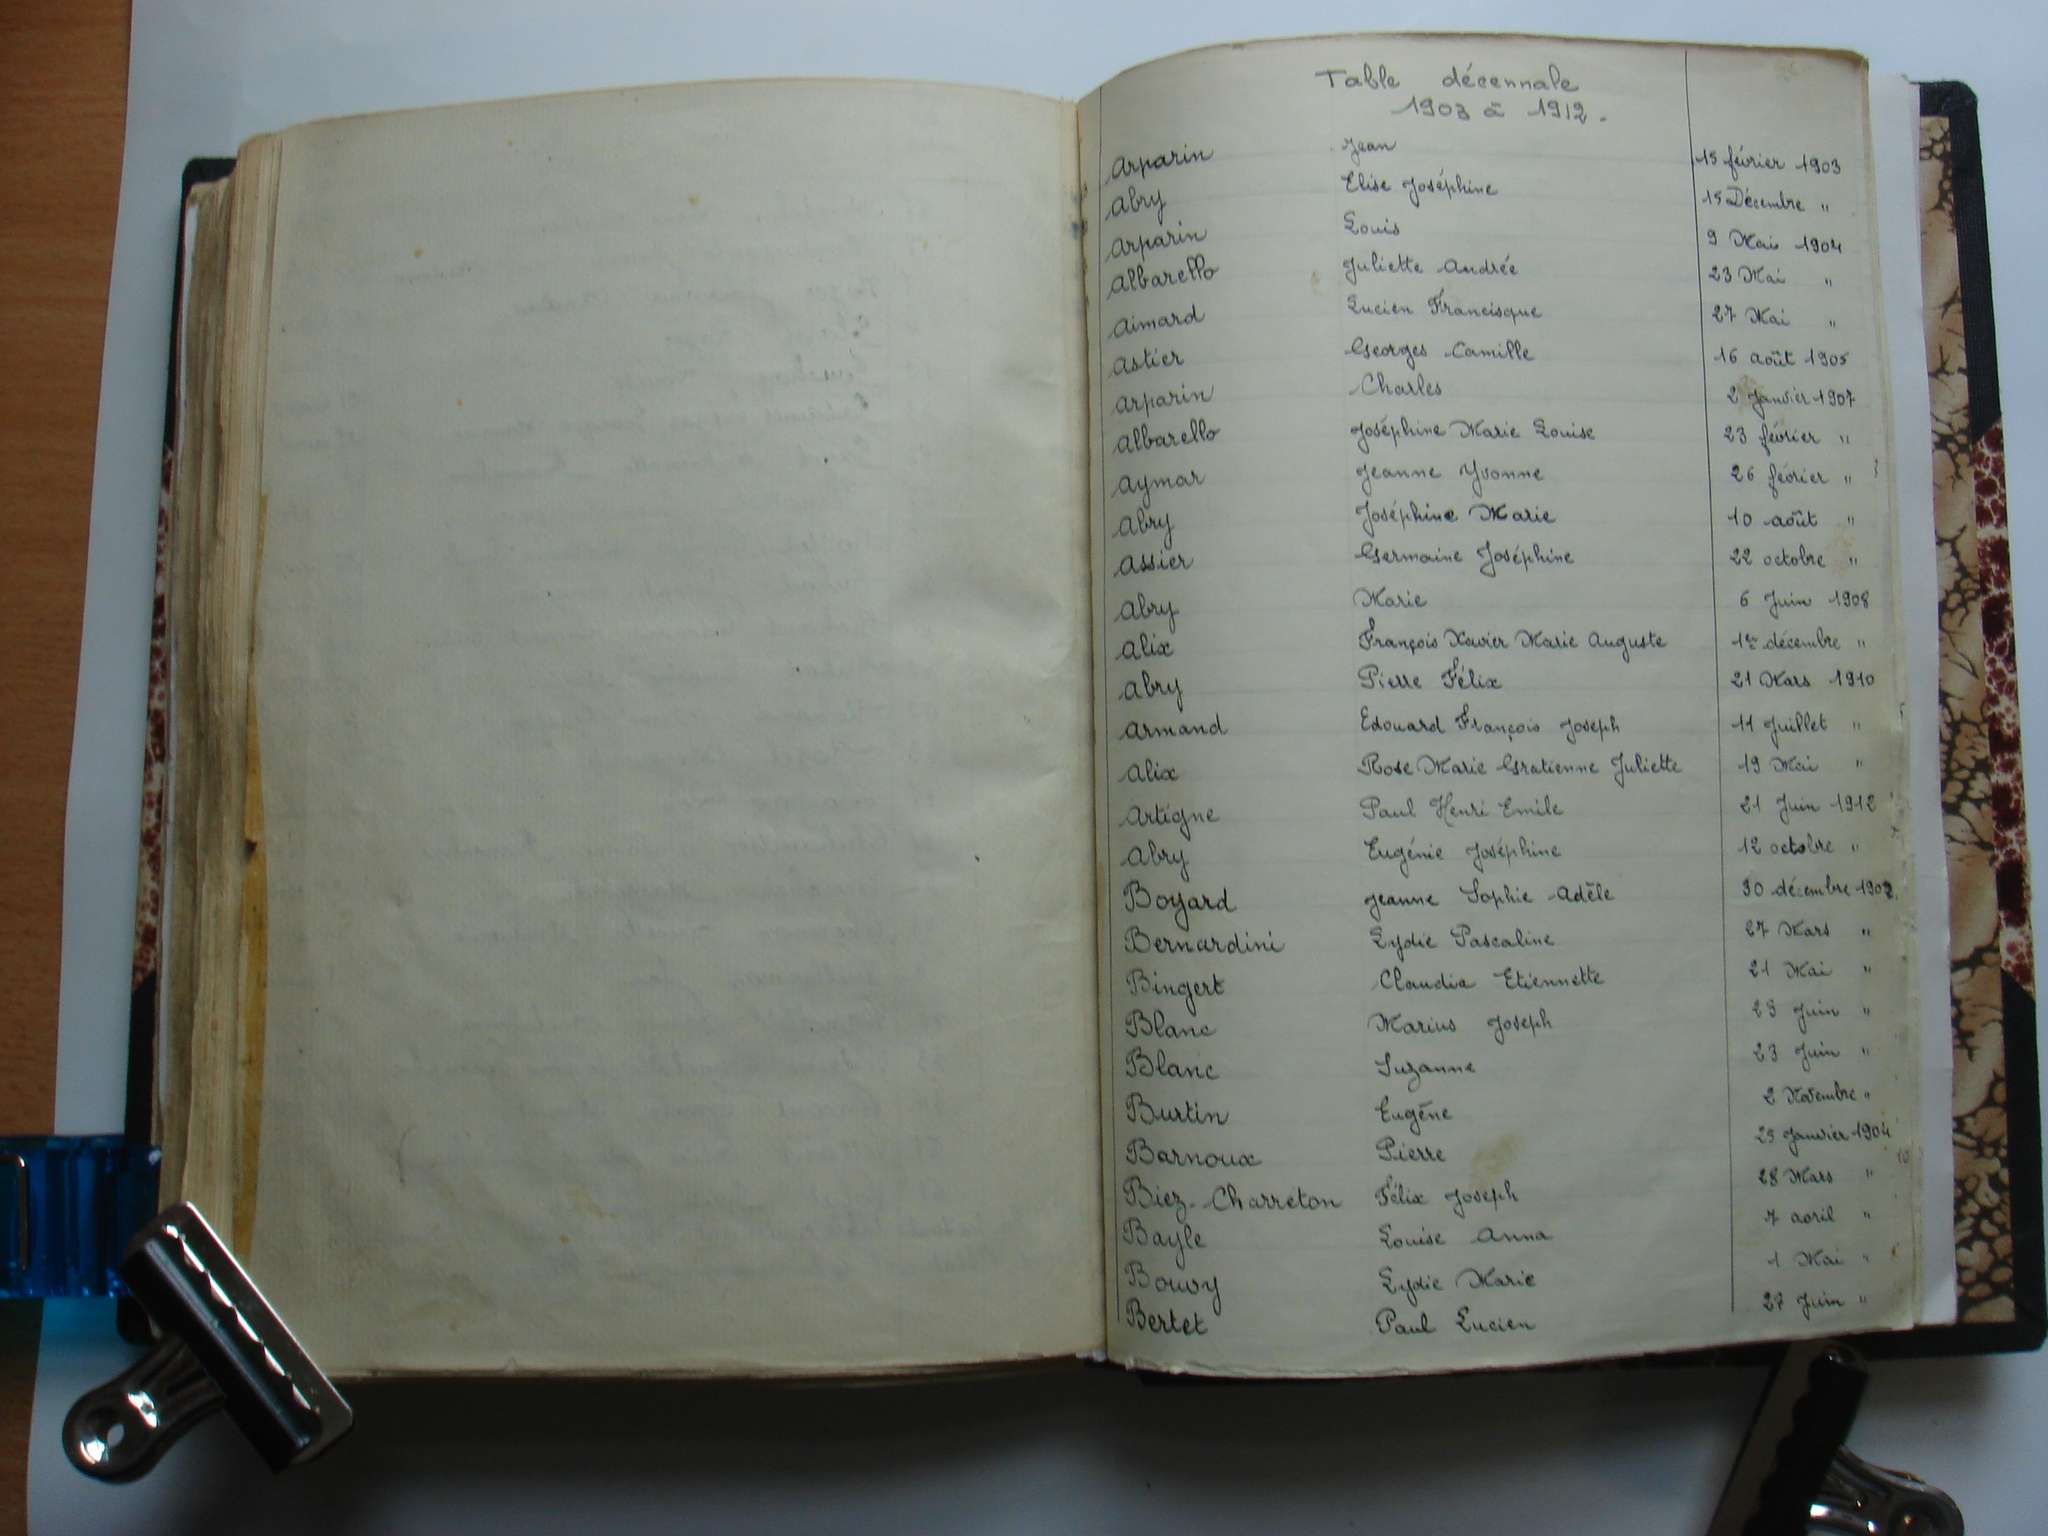 Table décennale
1903 à 1912.
Arparin Jean 15 février 1903
Abry Elise Joséphine 15 Décembre "
Arparin Louis 9 Mai 1904
Albarello Juliette Andrée 23 Mai "
Aimard Lucien Francisque 27 Mai "
Astier Georges Camille 16 août 1905
Arparin Charles 2 Janvier 1907
Albarello Joséphine Marie Louise 23 février "
Aymar Jeanne Yvonne 26 février "
Abry Joséphine Marie 10 août "
Assier Germaine Joséphine 22 octobre "
Abry Marie 6 Juin 1908
Alix François Xavier Marie Auguste 1er décembre "
Abry Pierre Félix 21 Mars 1910
Armand Edouard François Joseph 11 Juillet "
Alix Rose Marie Gratienne Juliette 19 Mai "
Artigne Paul Henri Emile 21 Juin 1912
Abry Eugénie Joséphine 12 octobre "
Boyard Jeanne Sophie Adèle 30 décembre
Bernardini Lydie Pascaline 27 Mars "
Bingert Claudia Etiennette 21 Mai "
Blanc Marius Joseph 23 Juin "
Blanc Suzanne 23 Juin "
Burtin Eugène 2 Novembre "
Barnoux Pierre 25 Janvier 1904
Biez-Charreton Félix Joseph 28 Mars "
Bayle Louise Anna 7 avril "
Bouvy Lydie Marie 1 Mai "
Bertet Paul Lucien 27 Juin "